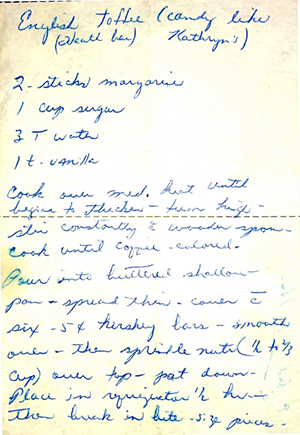 English Toffee (candy like
(Heath bar) Kathryn's)
2 - sticks margarine
1 cup sugar
3 T water
1 t. vanilla
Cook over med. heat until
begins to thicken - turn
stir constantly c̄ wooden spoon -
cook until coffee - colored -
Pour into buttered shallow
pan - spread thin - cover c̄
six - 5¢ Hershey bars - smooth
over - then sprinkle nuts (½ to ⅔
cup) over top - pat down -
Place in refrigerator ½ hr -
then break in bite - size pieces -